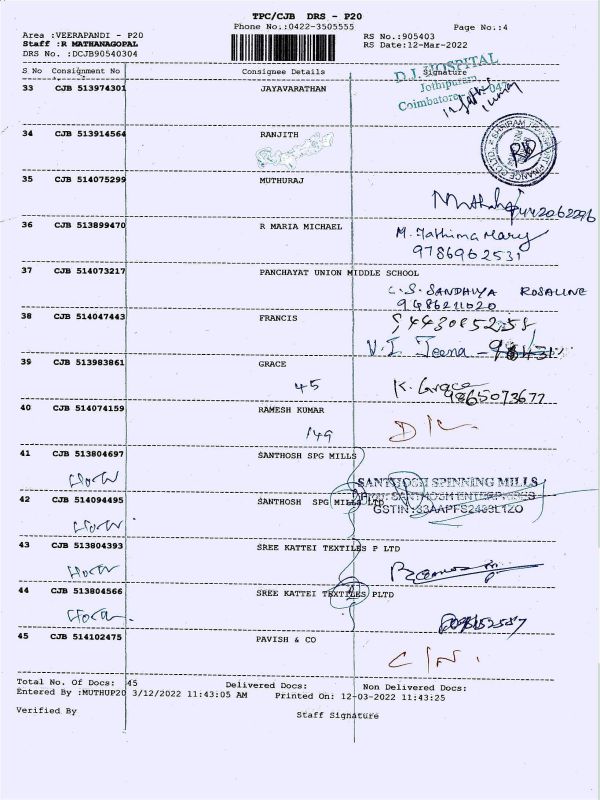 TPC/CJB DRS - P20
Phone No.:0422-3505555
Page No.:4
Area :VEERAPANDI - P20
RS No.:905403
Staff :R MATHANAGOPAL
RS Date:12-Mar-2022
DRS No. :DCJB90540304
S No Consignment No Consignee Details Signature
D.J. HOSPITAL
Jothipuram,
Coimbatore
33 CJB 513974301 JAYAVARATHAN
34 CJB 513914564 RANJITH
35 CJB 514075299 MUTHURAJ
36 CJB 513899470 R MARIA MICHAEL
M. Fathima Mary
9786962531
37 CJB 514073217 PANCHAYAT UNION MIDDLE SCHOOL
C.S. SANDHIYA ROSALINE
9486211020
38 CJB 514047443 FRANCIS
V.I. Teena
39 CJB 513983861 GRACE
45 K. Grace
9865073677
40 CJB 514074159 RAMESH KUMAR
149
41 CJB 513804697 SANTHOSH SPG MILLS
SANTHOSH SPINNING MILLS
42 CJB 514094495 SANTHOSH SPG MILLS LTD
43 CJB 513804393 SREE KATTEI TEXTILES P LTD
44 CJB 513804566 SREE KATTEI TEXTILES PLTD
45 CJB 514102475 PAVISH & CO
Total No. Of Docs: 45 Delivered Docs: Non Delivered Docs:
Entered By :MUTHUP20 3/12/2022 11:43:05 AM Printed On: 12-03-2022 11:43:25
Verified By Staff Signature